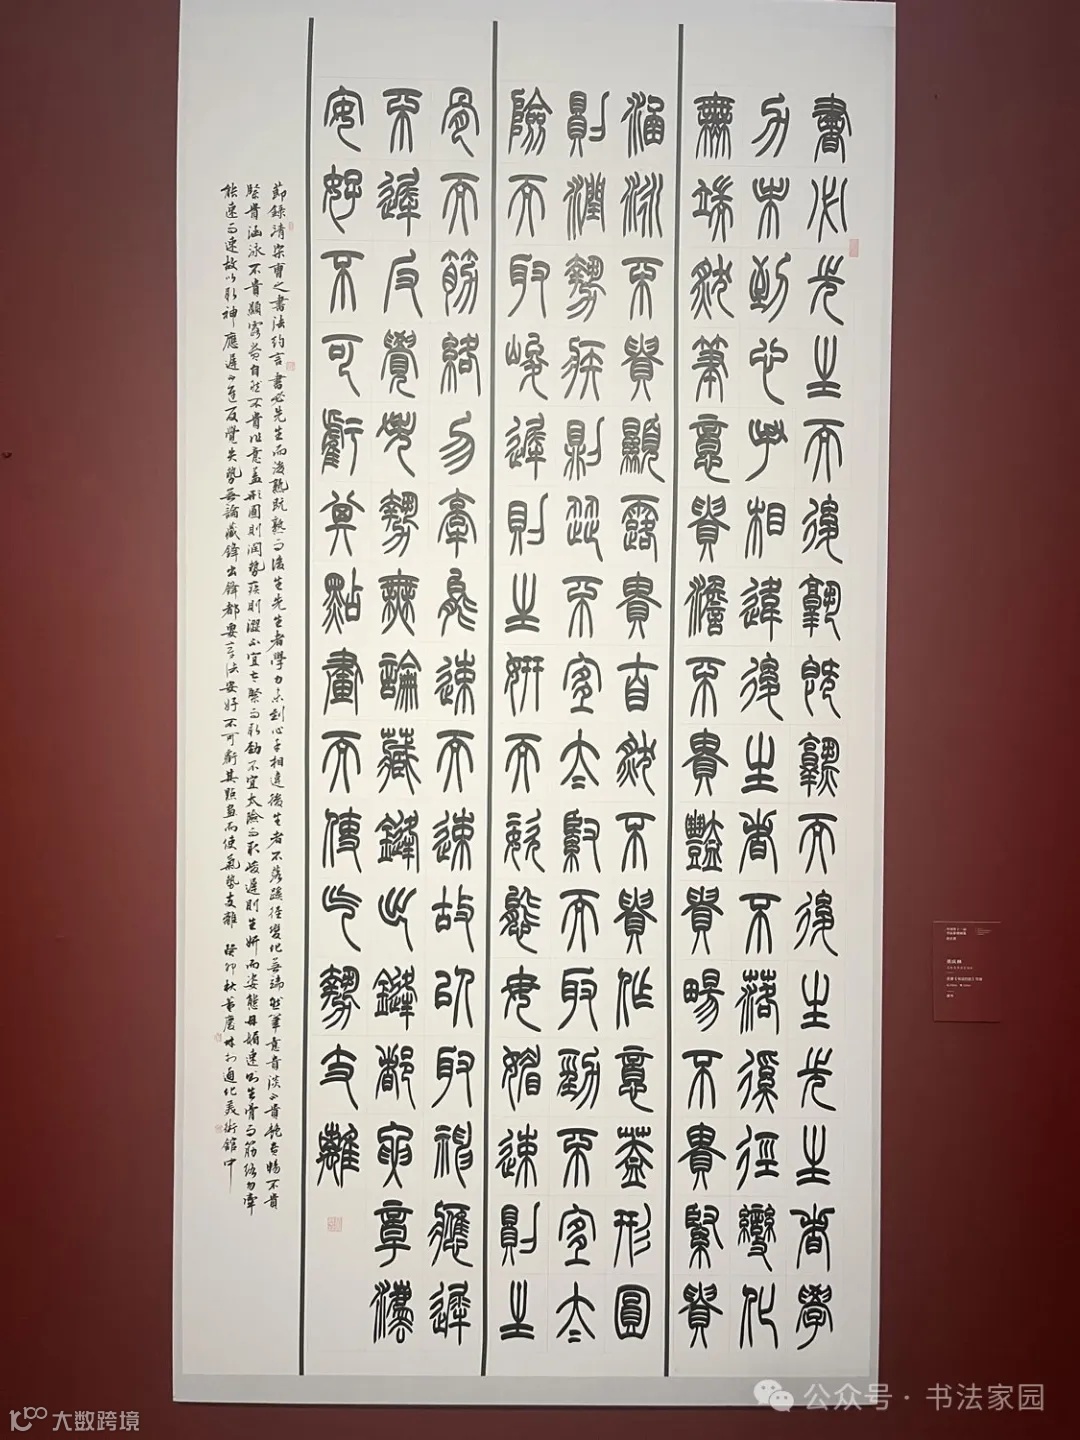 書必先生而後熟既熟而後生先生者學
力未到心手相違後生者不落蹊徑變化
無端然筆意貴澹不貴豔貴暢不貴緊貴
涵泳不貴顯露貴自然不貴作意蓋形圓
則潤勢疾則澀不宜太緊而取勁不宜太
險而取峻遲則生妍而姿態毋媚速則生
骨而筋絡勿牽能速而速故以取神應遲
不遲反覺失勢無論藏鋒出鋒都要章法
安好不可虧其點畫而使氣勢支離
節錄清宋曹之書法約言 書必先生而後熟既熟而後生先生者學力未到心手相違後生者不落蹊徑變化無端然筆意貴淡不貴艷貴暢不貴
緊貴涵泳不貴顯露貴自然不貴作意蓋形圓則潤勢疾則澀不宜太緊而取勁不宜太險而取峻遲則生妍而姿態毋媚速則生骨而筋絡勿牽
能速而速故以取神應遲不遲反覺失勢無論藏鋒出鋒都要章法安好不可虧其點畫而使氣勢支離 癸卯秋於通化美術館中
公众号·书法家园
大数跨境